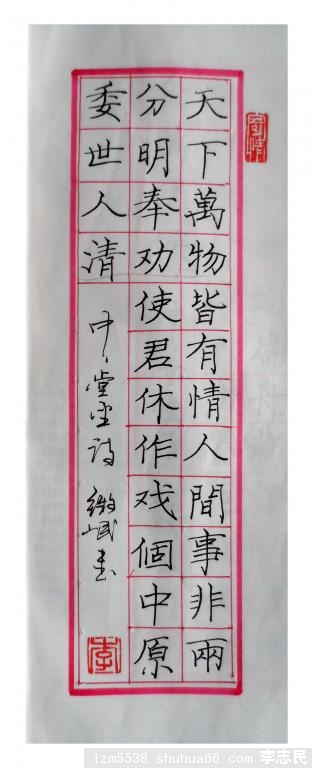 天下萬物皆有情人間事非兩
分明奉劝使君休作戏個中原
委世人清
堂 诗
李
lzm5538.shuhua66.com 李志民